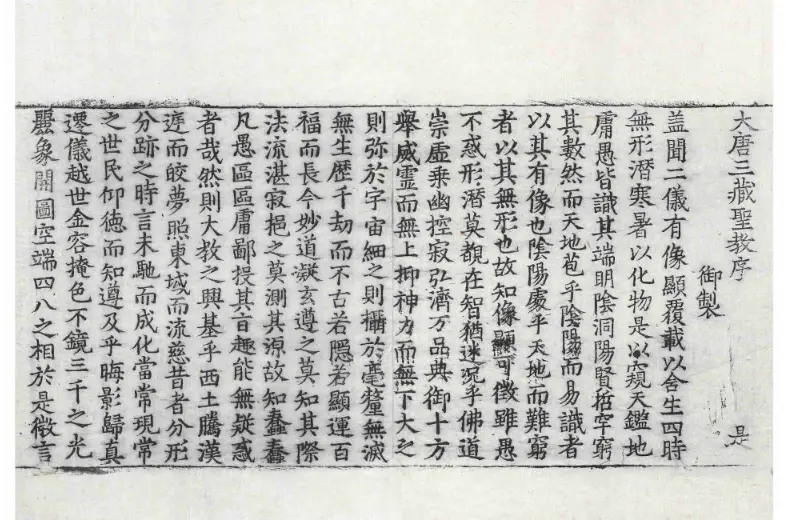 大唐三藏聖教序 是
御製
盖聞二儀有像顯覆載以含生四時
無形潜寒暑以化物是以窺天鑑地
庸愚皆識其端明陰洞陽賢哲罕窮
其數然而天地苞乎陰陽而易識者
以其有像也陰陽處乎天地而難窮
者以其無形也故知像顯可徵雖愚
不惑形潜莫覩在智猶迷況乎佛道
崇虛乗幽控寂弘濟万品典御十方
舉威靈而無上抑神力而無下大之
則弥於宇宙細之則攝於毫釐無滅
無生歷千劫而不古若隱若顯運百
福而長今妙道凝玄遵之莫知其際
法流湛寂挹之莫測其源故知蠢蠢
凡愚區區庸鄙投其旨趣能無疑惑
者哉然則大教之興基乎西土騰漢
庭而皎夢照東域而流慈昔者分形
分跡之時言未馳而成化當常現常
之世民仰德而知遵及乎晦影歸真
遷儀越世金容掩色不鏡三千之光
麗象開圖空端四八之相於是微言